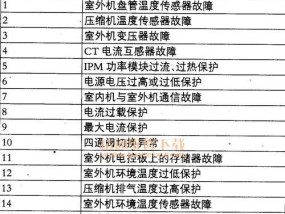 1 室外机盘管温度传感器故障
2 压缩机温度传感器故障
3 室外机变压器故障
4 CT 电流互感器故障
5 IPM 功率模块过流、过热保护
6 电源电压过高或过低保护
7 室内机与室外机通信故障
8 电流过载保护
9 最大电流保护
10 四通阀切换异常
11 室外机电控板上的存储器故障
12 室外机环境温度过低保护
13 压缩机排气温度过高保护
14 室外机环境温度传感器故障